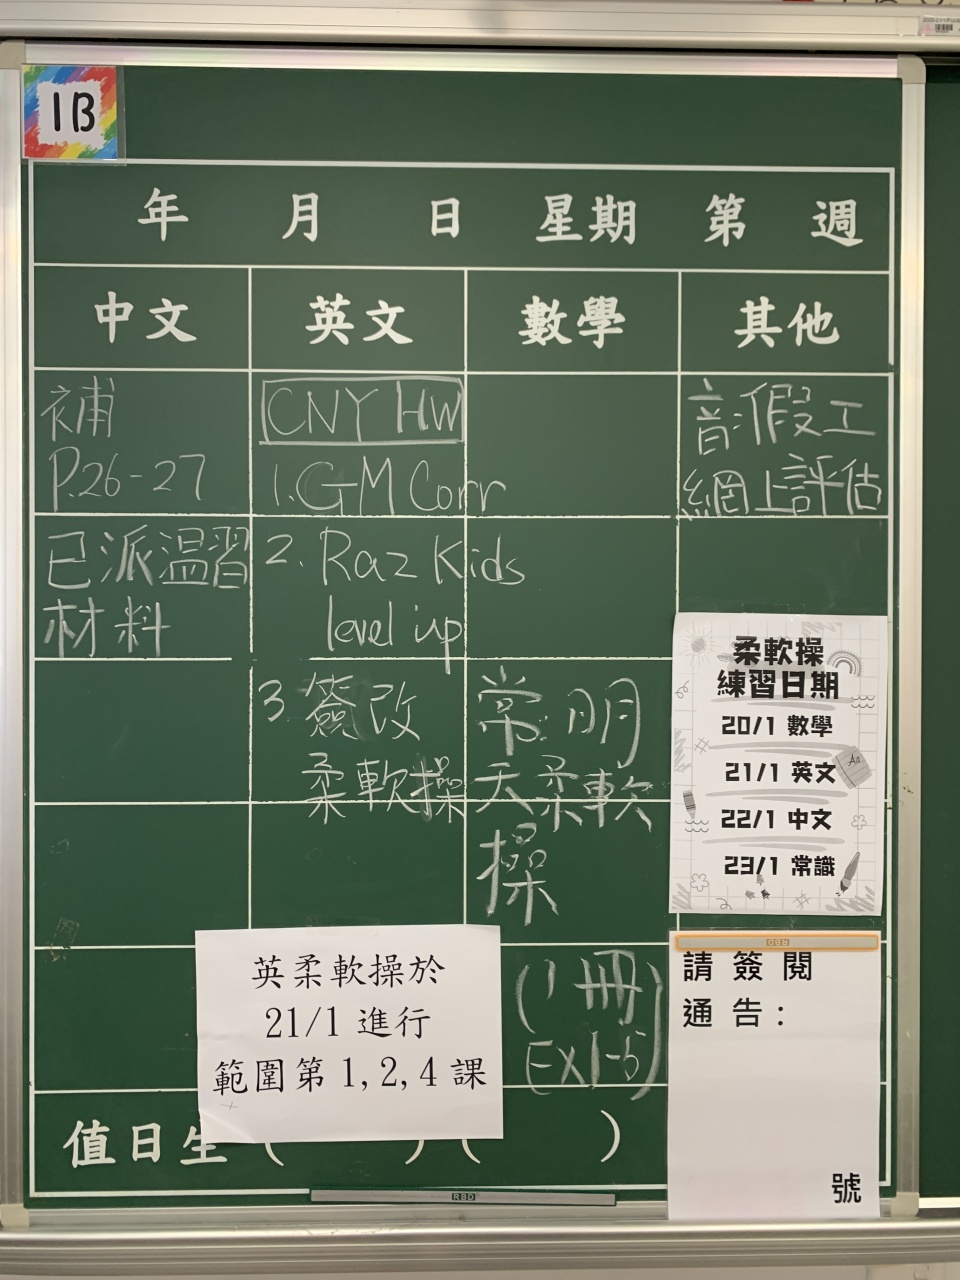 1B
年 月 日 星期 第 週
中文 英文 數學 其他
補
P.26-27
已派温習
材料
CNY HW
1. GM Corr
2. Raz Kids
level up
3. 簽改
柔軟操
常:明
天柔軟
操
(1冊
Ex1-5)
音:假工
網上評估
柔軟操
練習日期
20/1 數學
21/1 英文
22/1 中文
23/1 常識
英柔軟操於
21/1 進行
範圍第 1, 2, 4 課
請簽閱
通告:
號
值日生( )( )
RBD
RBD